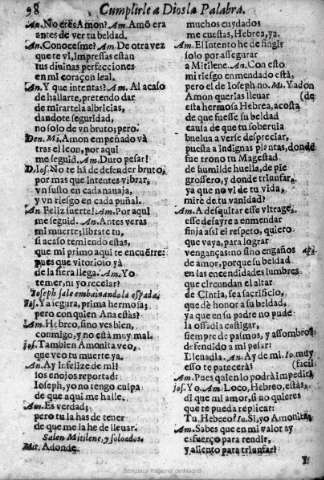 98 Cumplirle a Dios la Palabra.
An. No eres Amon? Am. Amõ era
antes de ver tu beldad.
An. Conocesme? Am. De otra vez
que te vi, impressas estan
tus divinas perfecciones
en mi coraçon leal.
An. Y que intentas? Am. Al acaso
de hallarte, pretendo dar
de mirartela albricias,
dandote seguridad,
no solo de vn bruto; pero.
Den. Mi, Amon empeñado và
tras el leon, por aqui
me seguid. Am. Duro pesar!
D. Ios. No te hà de defender bruto,
por mas que intentes vibrar,
vn susto en cada nauaja,
y vn riesgo en cada puñal.
An. Feliz suerte! Am. Por aqui
me seguid. An. Antes veràs
mi muerte; librate tu,
si acaso temiendo estas,
que mi primo aqui te encuẽtre:
pues que vitorioso yà
de la fiera llega. Am. Yo
temer, ni yo recelar?
Ioseph sale embainando la espada.
Ios. Ya segura, prima hermosa;
pero con quien Ana estàs?
Am. Hebreo, sino ves bien,
conmigo, y no està muy mal.
Ios. Tambien Amonita veo,
que veo tu muerte ya.
An. Ay infelize de mi!
los enojos reportad:
Ioseph, yo no tengo culpa
de que aqui me halle.
Am. Es verdad;
pero tu la has de tener
de que me la he de lleuar.
Salen Mitilene, y soldados.
Mit. Adonde
muchos cuydados
me cuestas, Hebrea, ya.
Am. El intento he de fingir
solo por assegurar
a Mitilene. An. Con esto
mi riesgo enmendado està,
pero el de Ioseph no. Mi. Yadon
Amon querias lleuar (de
esta hermosa Hebrea, acosta
de que fuesse su beldad
causa de que tu soberuia
buelua a verse despreciar,
puesta a indignas plantas, donde
fue trono tu Magestad
de humilde huella, de pie
grossero, y donde triunfar,
ya que no vi de tu vida,
mire de tu vanidad?
Am. A desquitar esse vltrage,
esse desayre a enmendar
finja assi el respeto, quiero
que vaya, para lograr
venganças: no sino engaños apa.
de amor, porque su beldad
en las encendidas lumbres
que circundan el altar
de Cintia, sea sacrificio,
que dè honor a su beldad,
ya que en su padre no pude
la ossadia castigar,
siempre de palmos, y assombros
defendido a mi pesar:
Lleuadla. An. Ay de mi. Io. muy
esso te patecerà (facil
Am. Pues quien lo podrà impedir?
Ios. Yo. Am. Loco, Hebreo, estàs,
di que mi amor, si no quieres
que te pueda replicar:
Tu, Hebreo? Io. Si, yo Amonita,
Am. Sabes que en mi valor ay
esfuerço para rendir,
y aliento para triunfar?